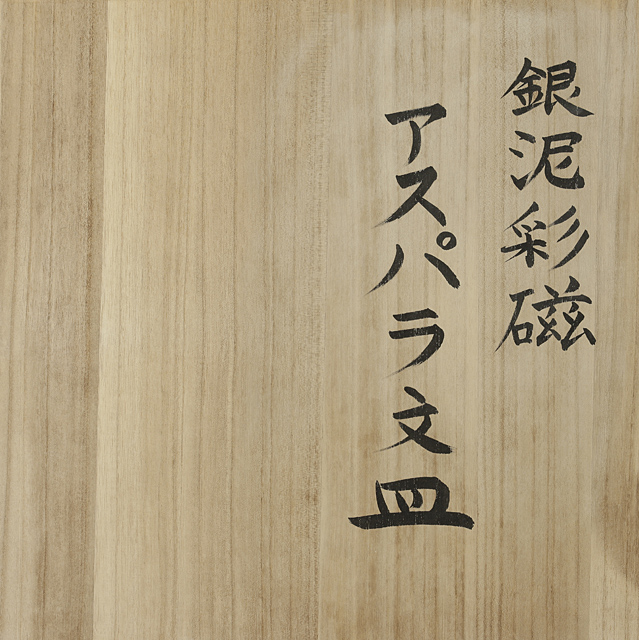 銀泥彩磁
アスパラ文皿